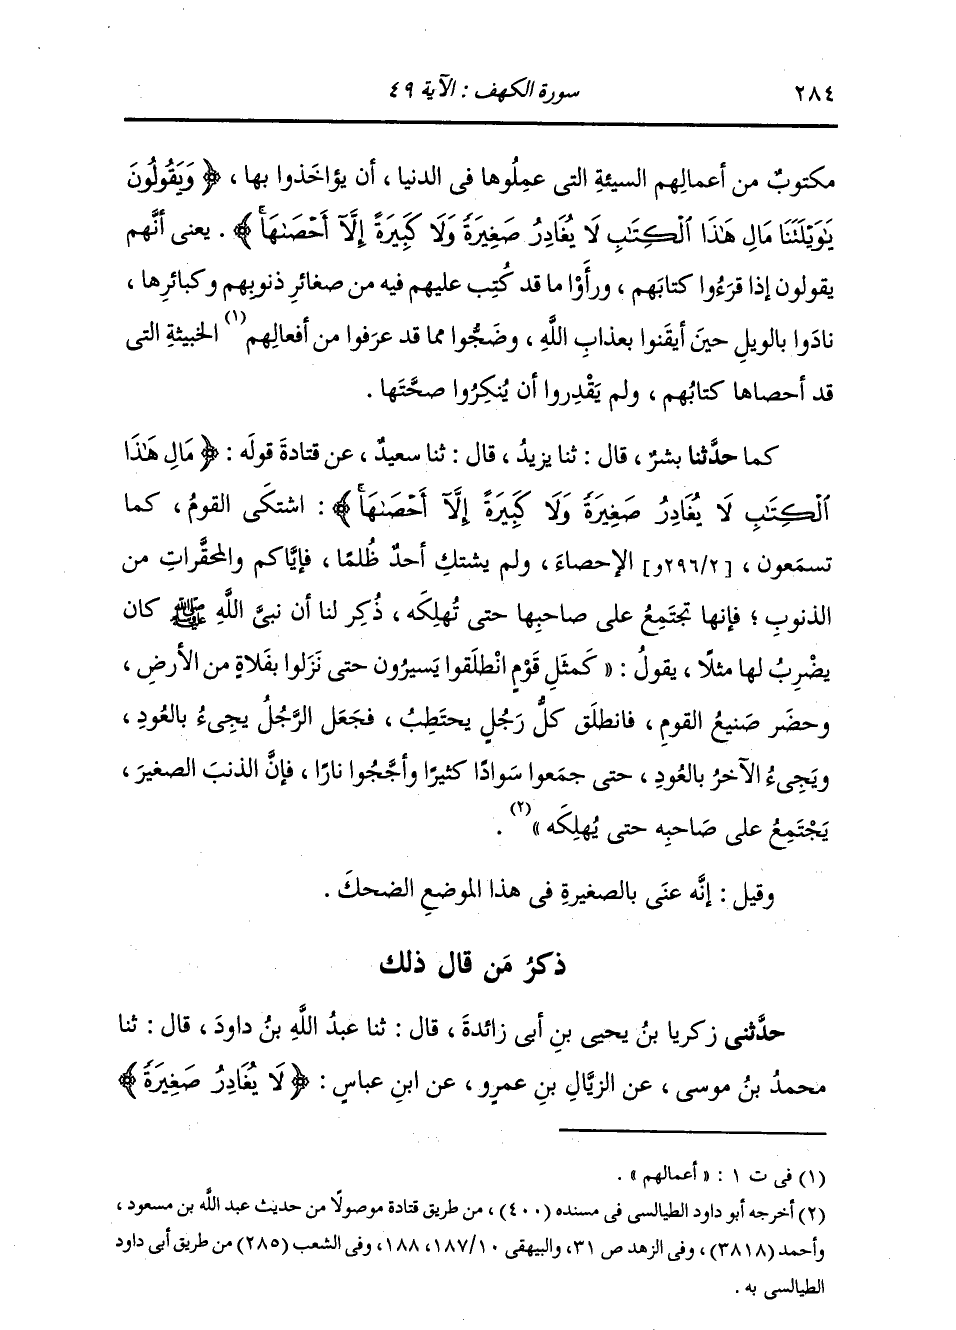 ٢٨٤
سورة الكهف : الآية ٤٩
مكتوبٌ من أعمالِهم السيئةِ التى عمِلُوها فى الدنيا ، أن يؤاخَذوا بها ، ﴿ وَيَقُولُونَ
يَٰوَيْلَتَنَا مَالِ هَٰذَا ٱلْكِتَٰبِ لَا يُغَادِرُ صَغِيرَةً وَلَا كَبِيرَةً إِلَّآ أَحْصَىٰهَاۚ ﴾ . يعنى أنَّهم
يقولون إذا قرَءُوا كتابَهم ، ورأَوْا ما قد كُتِب عليهم فيه من صغائرِ ذنوبِهم وكبائرِها ،
نادَوا بالويلِ حينَ أيقَنوا بعذابِ اللَّهِ ، وضَجُّوا مما قد عرَفوا من أفعالِهم(١) الخبيثةِ التى
قد أحصاها كتابُهم ، ولم يَقْدِروا أن يُنكِرُوا صحَّتَها .
كما حدَّثنا بشرٌ ، قال : ثنا يزيدُ ، قال : ثنا سعيدٌ ، عن قتادةَ قولَه : ﴿ مَالِ هَٰذَا
ٱلْكِتَٰبِ لَا يُغَادِرُ صَغِيرَةً وَلَا كَبِيرَةً إِلَّآ أَحْصَىٰهَاۚ ﴾ : اشتكَى القومُ ، كما
تسمَعون ، [٢٩٦/٢و] الإحصاءَ ، ولم يشتكِ أحدٌ ظُلمًا ، فإيَّاكم والمحقَّراتِ من
الذنوبِ ؛ فإنها تجتَمِعُ على صاحبِها حتى تُهلِكَه ، ذُكِر لنا أن نبىَّ اللَّهِ ﷺ كان
يضْرِبُ لها مثلًا ، يقولُ : « كَمثَلِ قَوْمٍ انْطلَقوا يَسيرُون حتى نَزَلوا بفَلاةٍ من الأرضِ ،
وحضَر صَنيعُ القومِ ، فانطلَق كلُّ رَجُلٍ يحتَطِبُ ، فجَعَل الرَّجُلُ يجِىءُ بالعُودِ ،
ويَجِىءُ الآخرُ بالعُودِ ، حتى جمَعوا سَوادًا كثيرًا وأجَّجُوا نارًا ، فإنَّ الذنبَ الصغيرَ ،
يَجْتَمِعُ على صَاحبِه حتى يُهلِكَه »(٢) .
وقيل : إنَّه عنَى بالصغيرةِ فى هذا الموضعِ الضحكَ .
ذكرُ مَن قال ذلك
حدَّثنى زكريا بنُ يحيى بنِ أبى زائدةَ ، قال : ثنا عبدُ اللَّهِ بنُ داودَ ، قال : ثنا
محمدُ بنُ موسى ، عن الزيَّالِ بنِ عمرٍو ، عن ابنِ عباسٍ : ﴿ لَا يُغَادِرُ صَغِيرَةً ﴾
(١) فى ت ١ : « أعمالهم » .
(٢) أخرجه أبو داود الطيالسى فى مسنده (٤٠٠) ، من طريق قتادة موصولًا من حديث عبد اللَّه بن مسعود ،
وأحمد (٣٨١٨) ، وفى الزهد ص ٣١، والبيهقى ١٨٧/١٠، ١٨٨، وفى الشعب (٢٨٥) من طريق أبى داود
الطيالسى به .